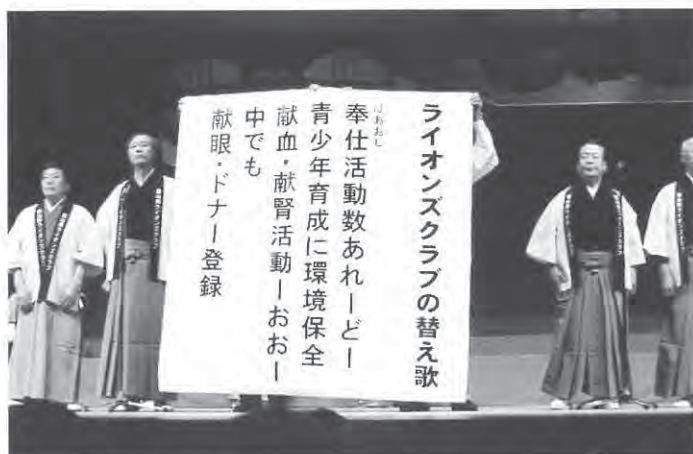 ライオンズクラブの替え歌
はあおし
奉仕活動数あれーどー
青少年育成に環境保全
献血・献腎活動ーおおー
中でも
献眼・ドナー登録